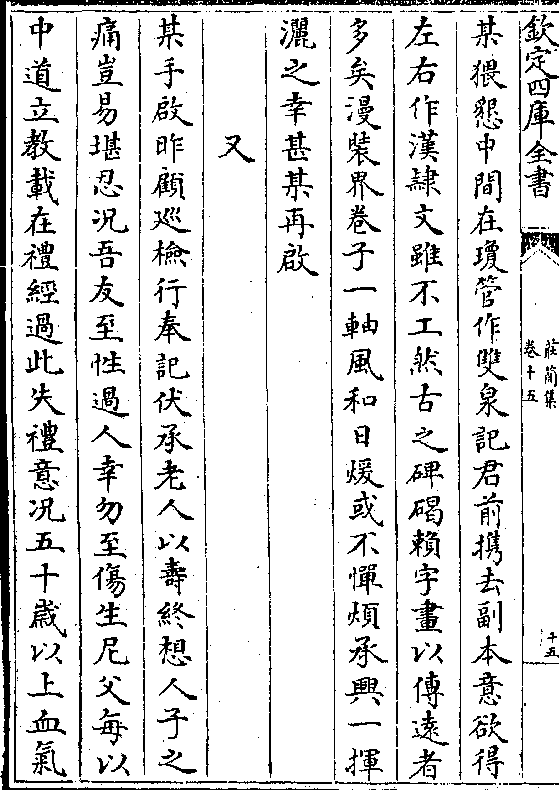 欽定四庫全書
莊簡集
卷十五
十五
某猥懇中間在瓊管作雙泉記君前携去副本意欲得
左右作漢隷文雖不工然古之碑碣頼字畫以傳逺者
多矣漫裝界卷子一軸風和日煖或不憚煩承興一揮
灑之幸甚某再啟
又
某手啟昨顧廵檢行奉記伏承老人以壽終想人子之
痛豈易堪忍况吾友至性過人幸勿至傷生尼父每以
中道立教載在禮經過此失禮意况五十歳以上血氣